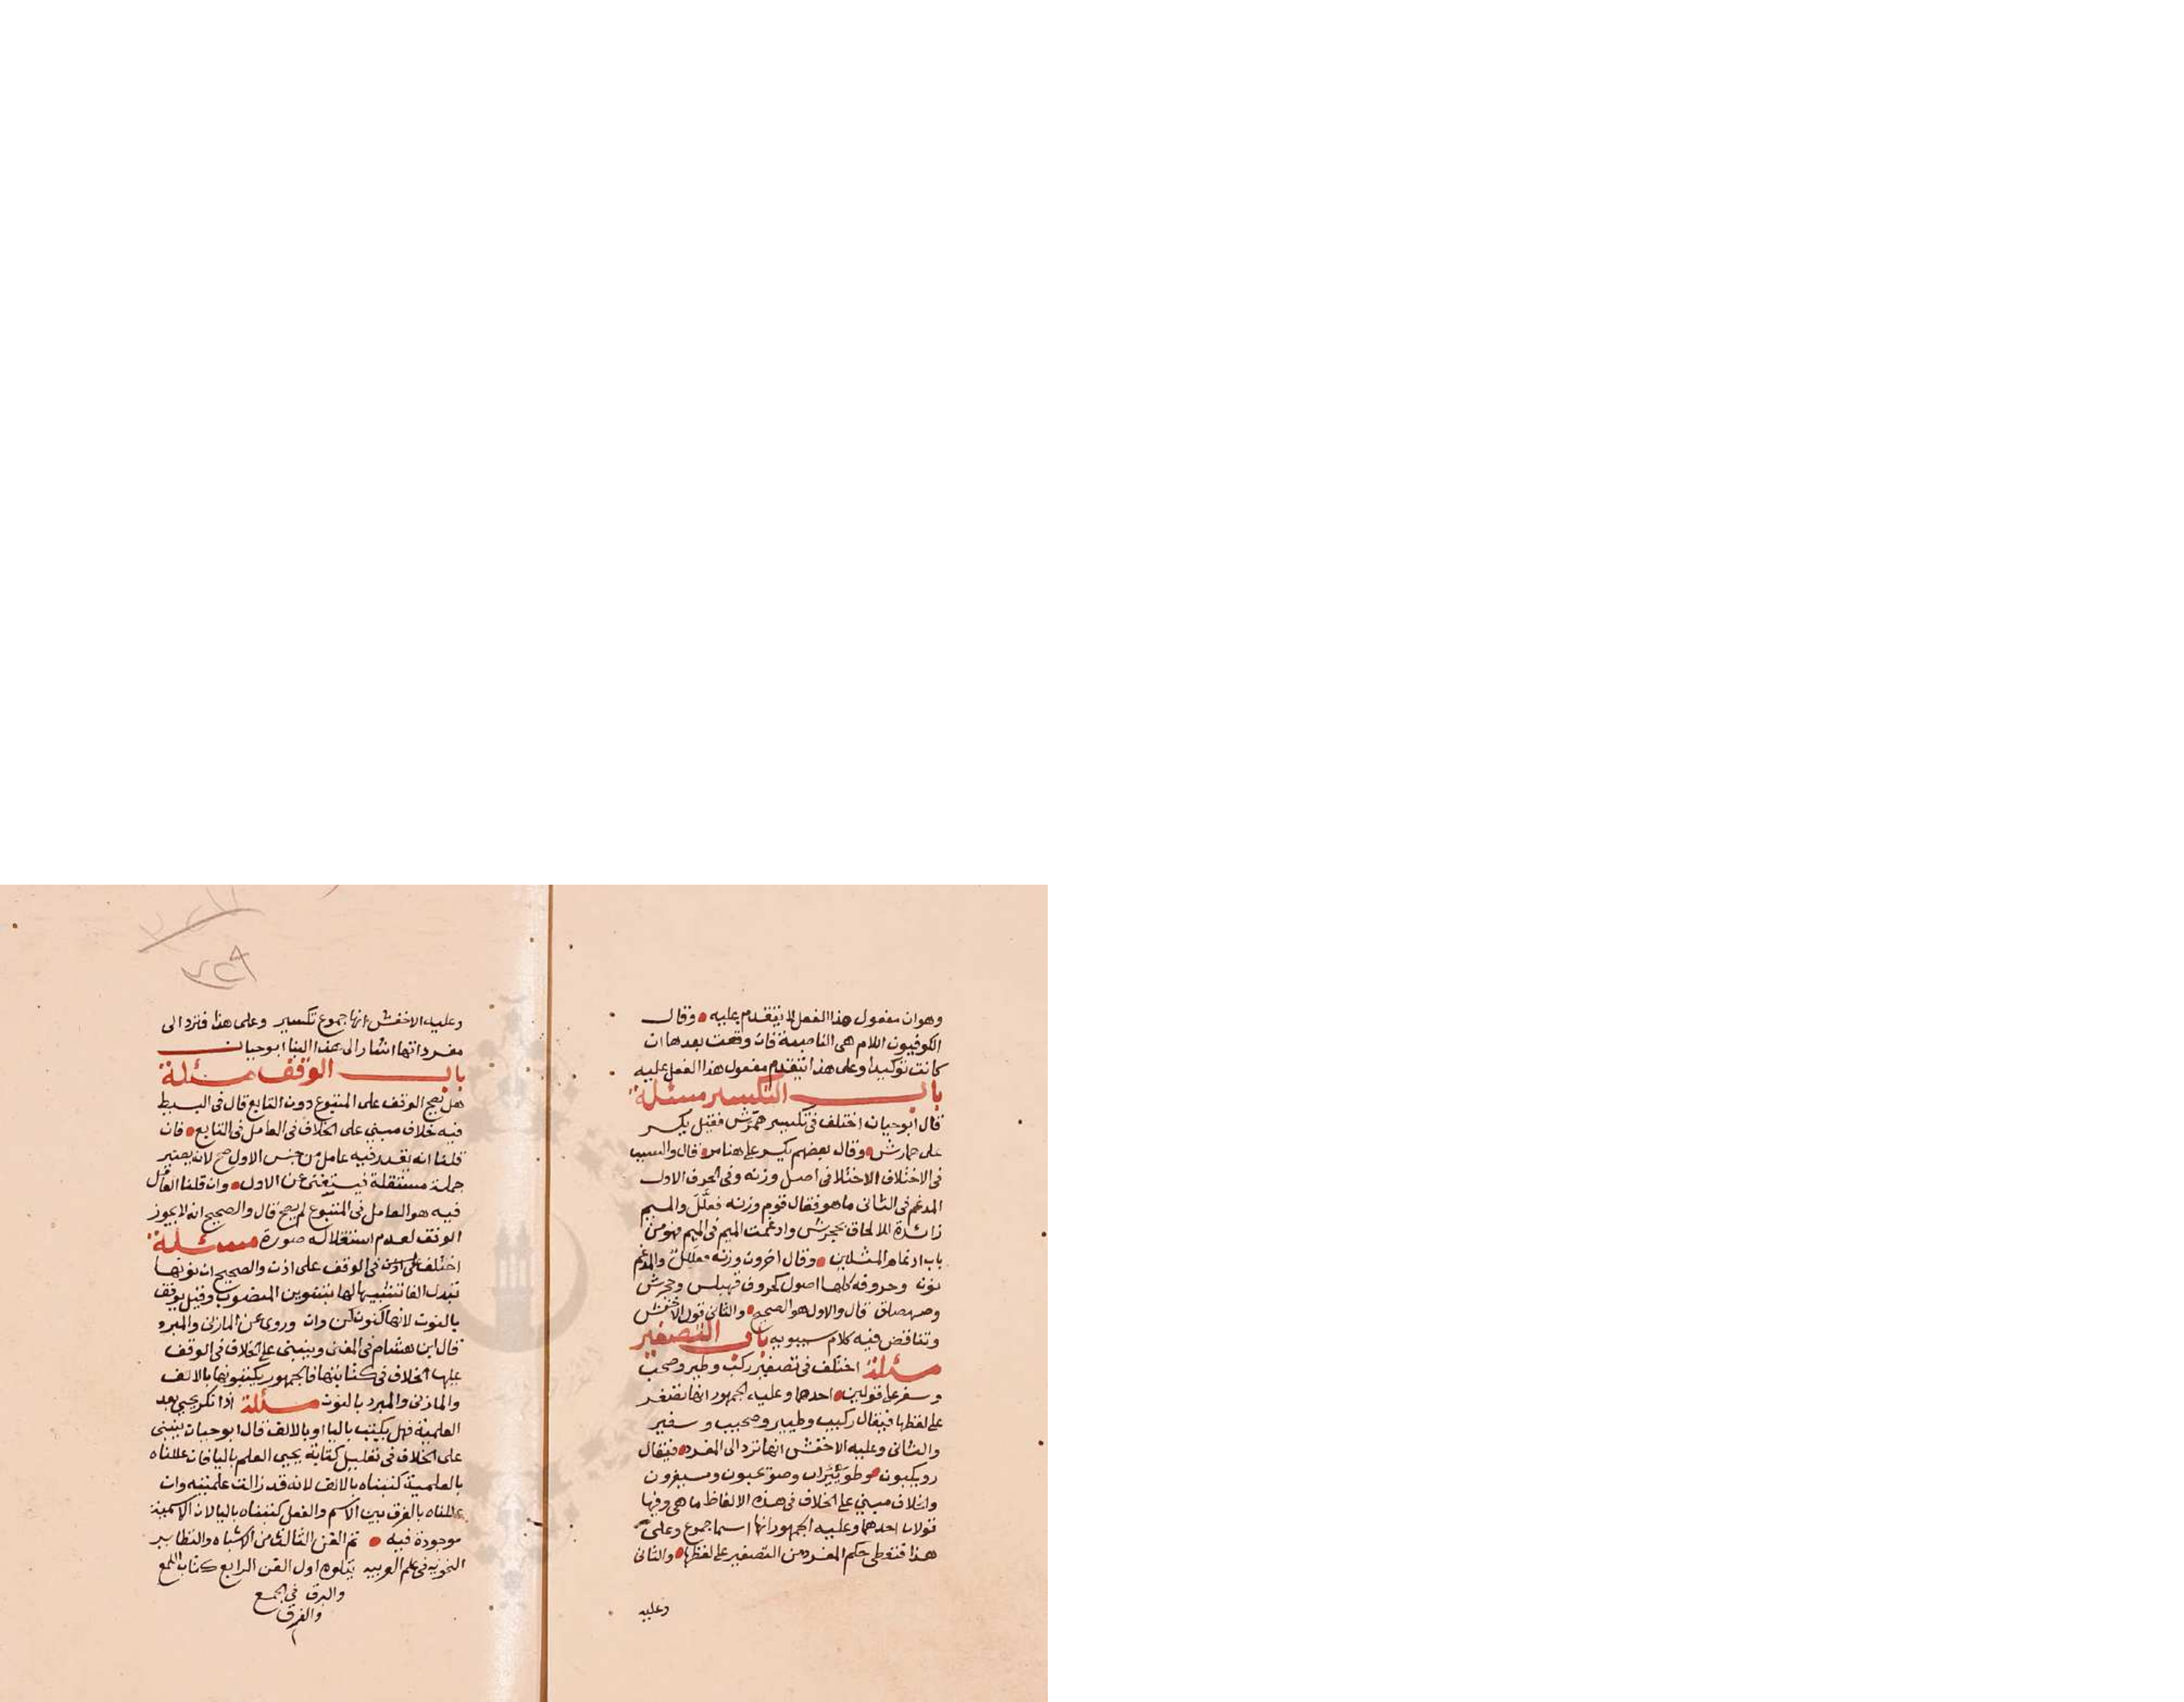 وهو ان مفعول هذا الفعل لا يتقدم عليه وقال
الكوفيون اللام هي الناصبة فان وقعت بعدها ان
كانت توكيدا وعلى هذا يتقدم مفعول هذا الفعل عليه
باب التكسير مسئلة
قال ابو حيان اختلف في تكسير همرش فقيل يكسر
على همارش وقال بعضهم يكسر على هنامر قال والسبب
في الاختلاف الاختلاف في اصل وزنه وفي الحرف الاول
المدغم في الثاني ما هو فقال قوم وزنه فعلّل والميم
زائدة للالحاق بجحمرش وادغمت الميم في الميم فهو من
باب ادغام المثلين وقال اخرون وزنه فعللل والمدغم
نون وحروفه كلها اصول كحروف قهبلس وجحمرش
وصهصلق قال والاول هو الصحيح والثاني قول الاخفش
وتناقض فيه كلام سيبويه باب التصغير
مسئلة اختلف في تصغير ركب وطير وصحب
وسفر على قولين احدهما وعليه الجمهور انها تصغر
على لفظها فيقال ركيب وطيير وصحيب وسفير
والثاني وعليه الاخفش انها ترد الى المفرد فيقال
رويكبون وطويئرات وصويحبون ومسيفرون
والخلاف مبني على الخلاف في هذه الالفاظ ما هي وفيها
قولان احدهما وعليه الجمهور انها اسما جموع وعلى
هذا فتعطى حكم المفرد من التصغير على لفظها والثاني
وعليه
وعليه الاخفش انها جموع تكسير وعلى هذا فترد الى
مفرداتها اشار الى هذا البنا ابو حيان
باب الوقف مسئلة
هل يصح الوقف على المتبوع دون التابع قال في البسيط
فيه خلاف مبني على الخلاف في العامل في التابع فان
قلنا انه نقدر فيه عامل من جنس الاول صح لانه يصير
جملة مستقلة فيستغنى عن الاول وان قلنا العامل
فيه هو العامل في المتبوع لم يصح قال والصحيح انه لا يجوز
الوقف لعدم استقلاله صورة مسئلة
اختلف في الوقف على اذن والصحيح ان نونها
تبدل الفا تشبيها لها بتنوين المنصوب وقيل يوقف
بالنون لانها كنون لن وان وروى عن المازني والمبرد
قال ابن هشام في المغني وينبني على الخلاف في الوقف
عليها الخلاف في كتابتها فالجمهور يكتبونها بالالف
والمازني والمبرد بالنون مسئلة اذا نكر يحيى بعد
العلمية فهل يكتب باليا او بالالف قال ابو حيان ينبني
على الخلاف في تعليل كتابة يحيى العلم باليا فان عللناه
بالعلمية كتبناه بالالف لانه قد زالت علميته وان
عللناه بالفرق بين الاسم والفعل كتبناه باليا لان الاسمية
موجودة فيه تم الفن الثالث من الاشباه والنظاير
النحويه في علم العربيه يتلوه اول الفن الرابع كتاب اللمع
والبرق في الجمع
والفرق